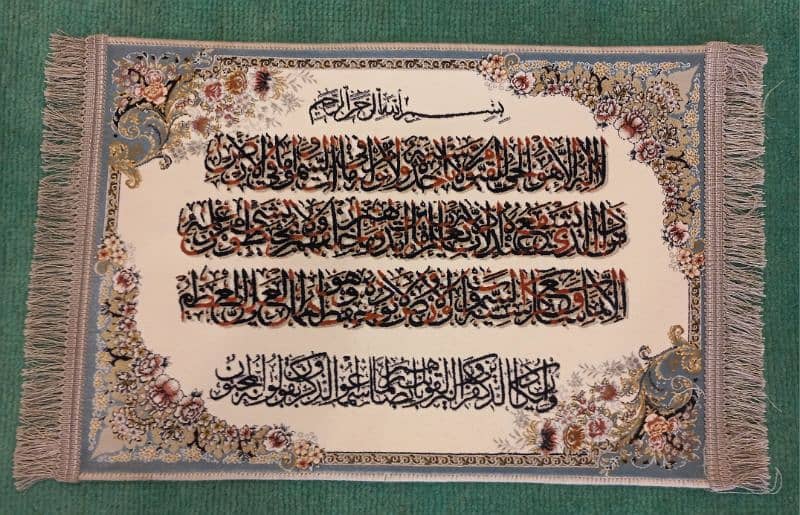 بسم الله الرحمن الرحيم
الله لا إله إلا هو الحي القيوم لا تأخذه سنة ولا نوم له ما في السموات وما في الأرض
من ذا الذي يشفع عنده إلا بإذنه يعلم ما بين أيديهم وما خلفهم ولا يحيطون بشيء من علمه
إلا بما شاء وسع كرسيه السموات والأرض ولا يؤده حفظهما وهو العلي العظيم
وإن يكاد الذين كفروا ليزلقونك بأبصارهم لما سمعوا الذكر ويقولون إنه لمجنون